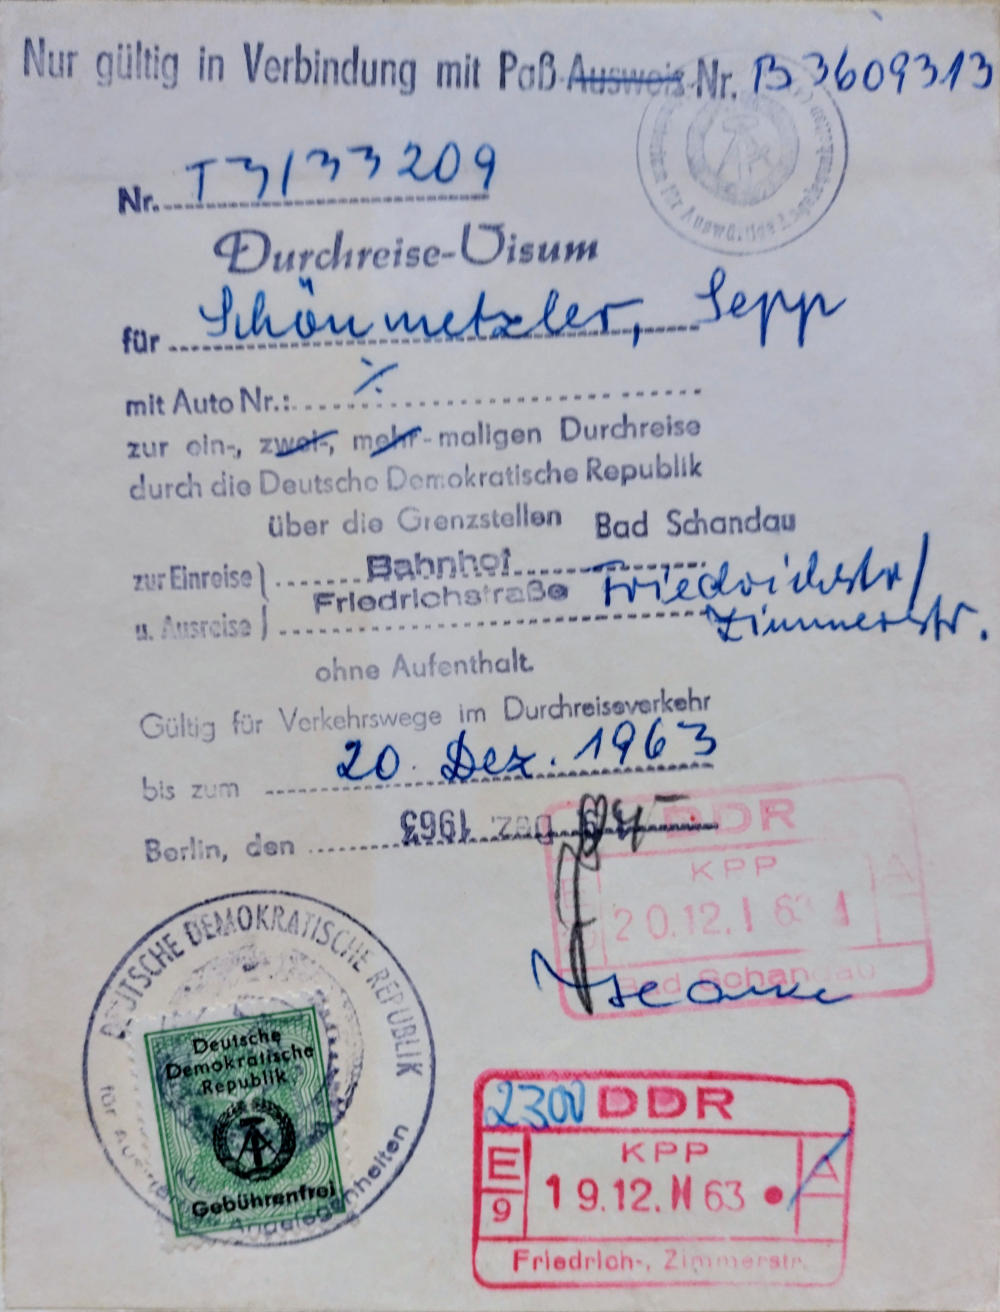 Nur gültig in Verbindung mit Paß-Ausweis-Nr. B3609313
Nr. T3/33209
Durchreise-Visum
für Schönmetzler, Sepp
mit Auto Nr.:
zur ein-, zwei-, mehr-maligen Durchreise
durch die Deutsche Demokratische Republik
über die Grenzstellen Bad Schandau
zur Einreise Bahnhof Friedrichstr/
u. Ausreise Friedrichstraße Zimmerstr.
ohne Aufenthalt.
Gültig für Verkehrswege im Durchreiseverkehr
bis zum 20. Dez. 1963
Berlin, den Dez. 1963
DDR
KPP
A
20.12.
63
Bad Schandau
DEUTSCHE DEMOKRATISCHE REPUBLIK
für Angelegenheiten
Deutsche
Demokratische
Republik
Gebührenfrei
2300 DDR
E KPP A
9 19.12. N 63
Friedrich-, Zimmerstr.